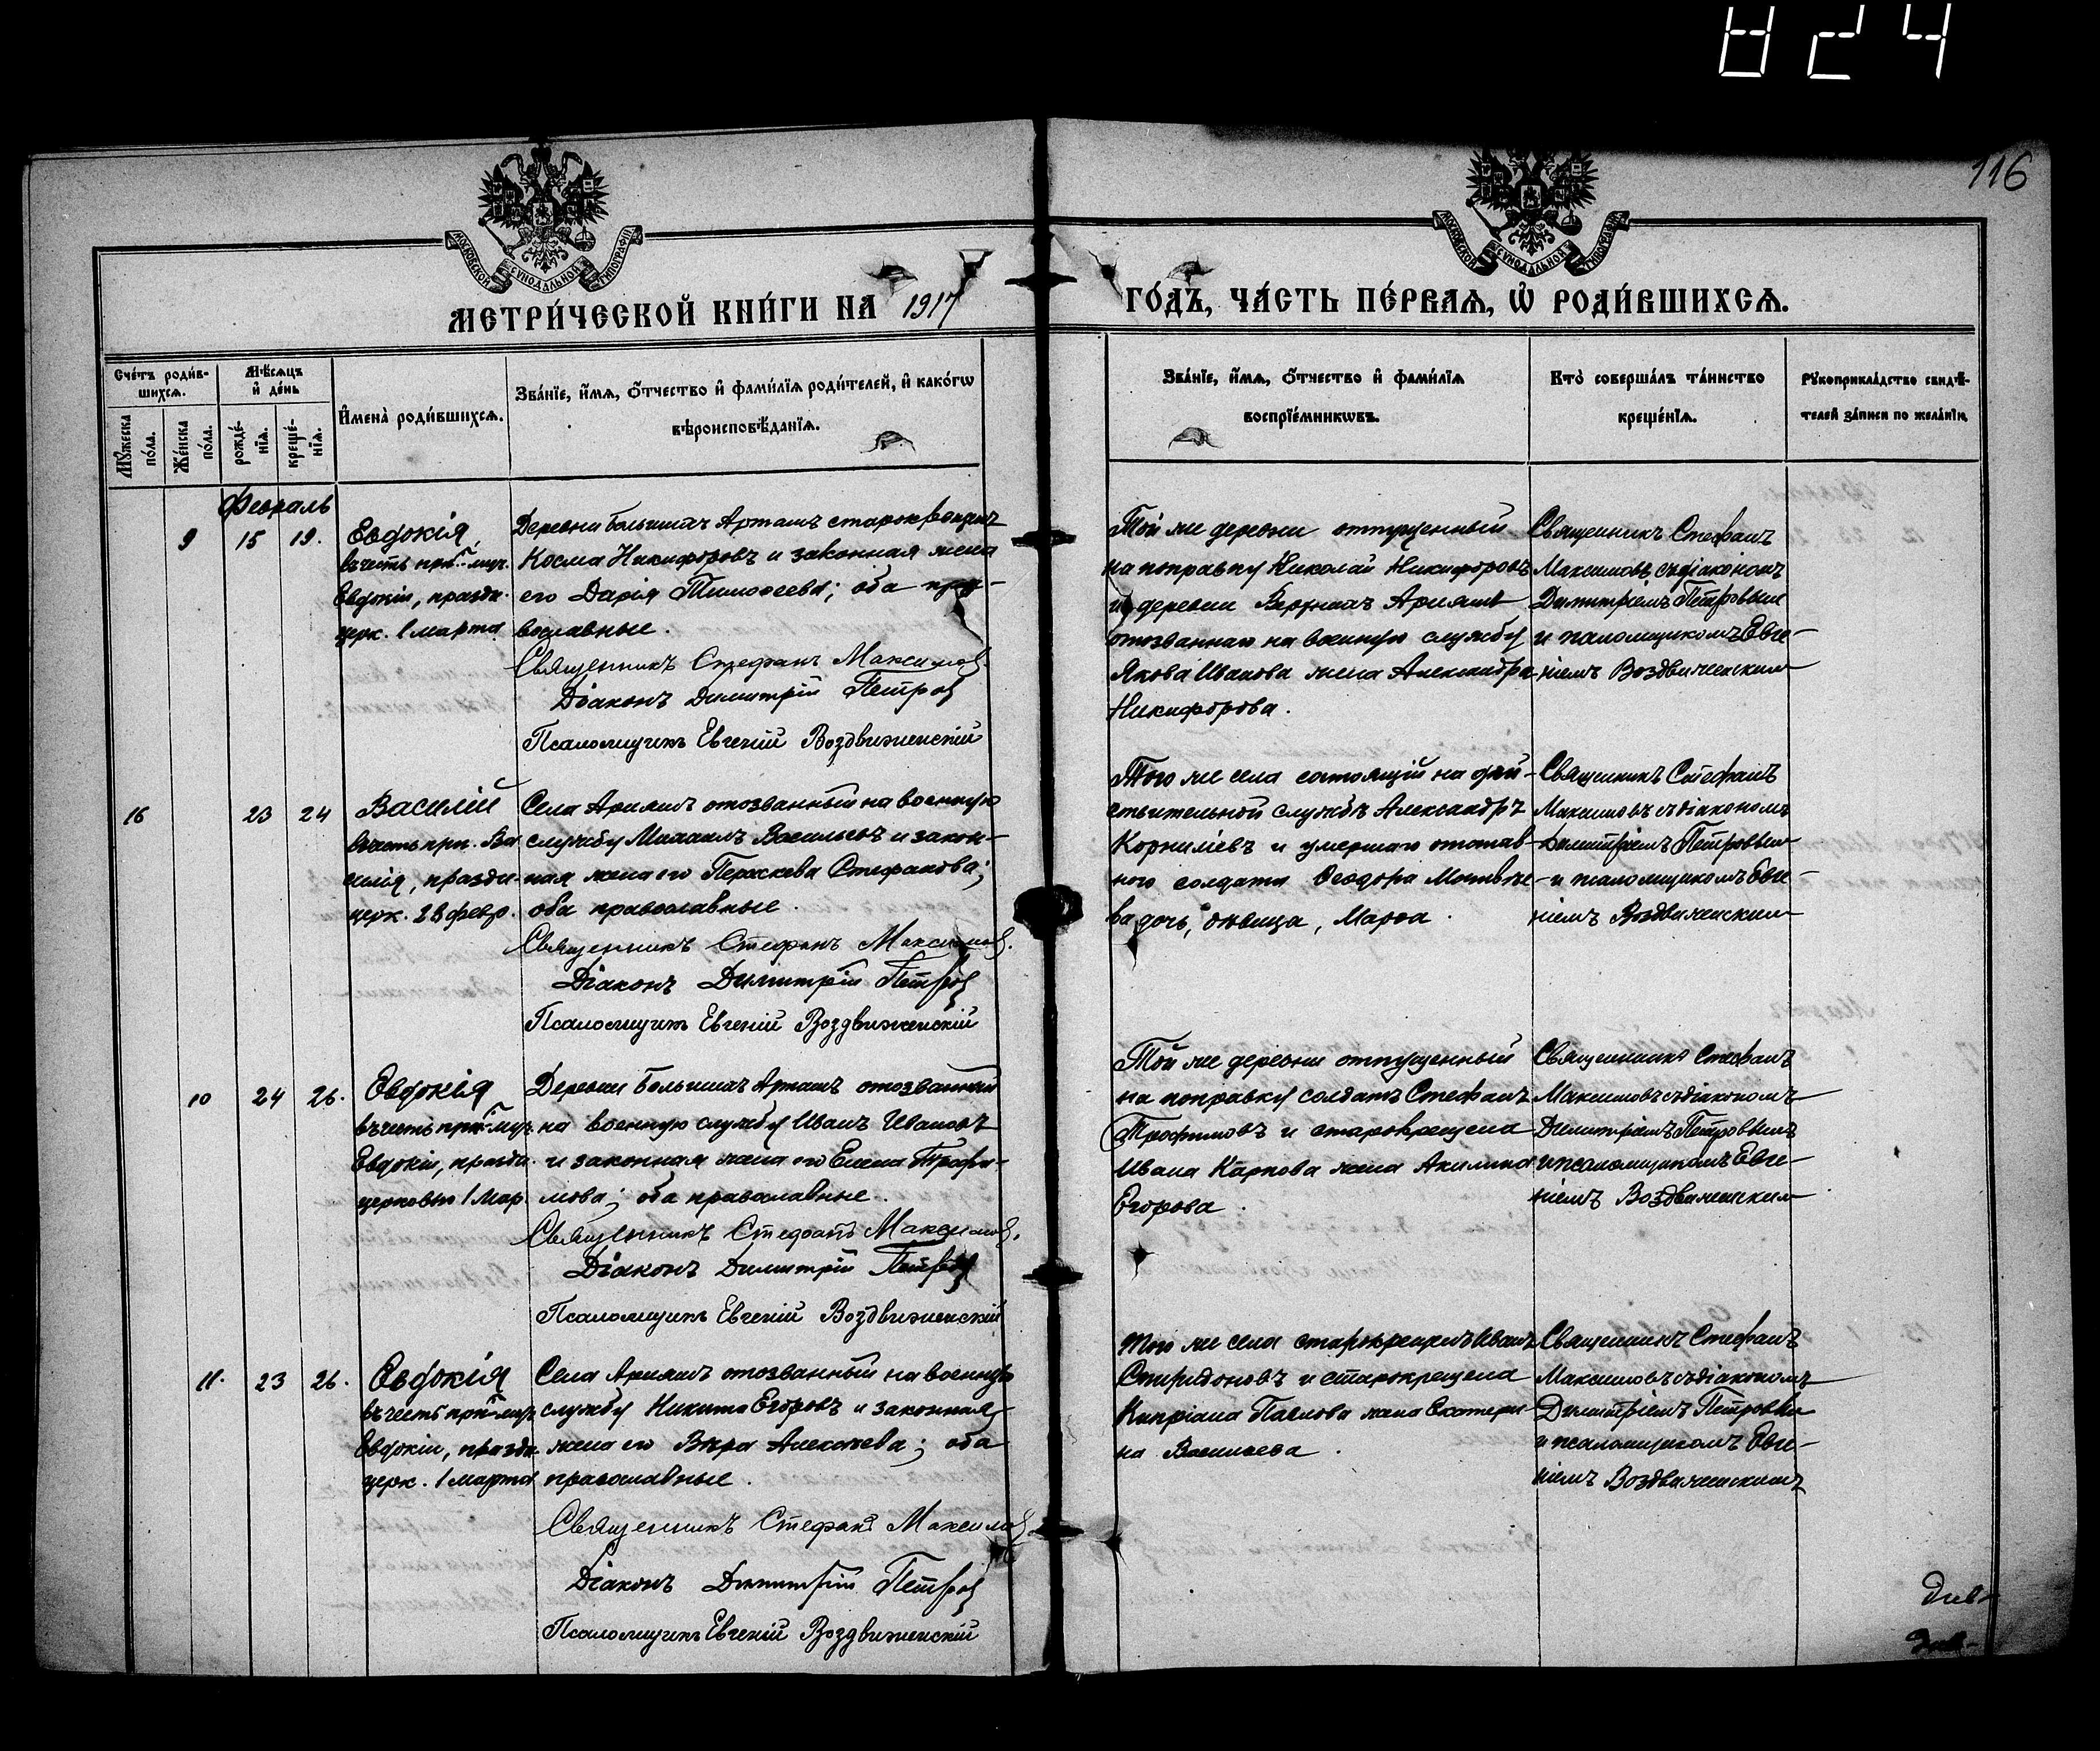 824
116
МОСКОВСКОЙ СѴНОДАЛЬНОЙ ТИПОГРАФІИ
МОСКОВСКОЙ СѴНОДАЛЬНОЙ ТИПОГРАФІИ
МЕТРИ́ЧЕСКОЙ КНИ́ГИ НА 1917
ГО́ДЪ, ЧА́СТЬ ПЕ́РВАѦ, Ѡ҆ РОДИ́ВШИХСѦ.
Сче́тъ роди́в-
шихсѧ.
Мѣ́сѧцъ
и҆ де́нь
Мꙋ́жеска
по́ла.
Же́нска
по́ла.
рожде́-
нїѧ.
креще́-
нїѧ.
И҆мена̀ роди́вшихсѧ.
Зва́нїе, и҆́мѧ, ѻ҆́тчество и҆ фами́лїѧ роди́телей, и҆ како́гѡ
вѣроисповѣ́данїѧ.
Зва́нїе, и҆́мѧ, ѻ҆́тчество и҆ фами́лїѧ
воспрїе́мникѡвъ.
Кто̀ соверша́лъ та́инство
креще́нїѧ.
Рꙋкоприкла́дство свидѣ́-
телей за́писи по жела́нїю.
Февраль
9 15 19.
Евдокія,
въ честь прп. муч.
Евдокіи, праздн.
церк. 1 марта
Деревни Большихъ Арташъ старокрещенъ
Косма Никифоровъ и законная жена
его Дарія Тимоѳеева; оба пра-
вославные.
Священникъ Стефанъ Максимовъ.
Діаконъ Димитрій Петровъ
Псаломщикъ Евгеній Воздвиженскій
Той же деревни отпущенный
на поправку Николай Никифоровъ
и деревни Верхнихъ
отозваннаго на военную службу
Якова Иванова жена Александра
Никифорова.
Священникъ Стефанъ
Максимовъ съ діакономъ
Димитріемъ Петровым
и псаломщикомъ Евге-
ніемъ Воздвиженским
16 23 24
Василій
въ честь прп. Ва
силія, праздн.
церк. 28 февр.
Села отозванный на военную
службу Васильевъ и закон-
ная жена его Параскева Стефанова;
оба православные.
Священникъ Стефанъ Максимовъ.
Діаконъ Димитрій Петровъ
Псаломщикъ Евгеній Воздвиженскій
Того же села состоящій на дѣй-
ствительной службѣ Александръ
Корниліевъ и умершаго отстав-
ного солдата Ѳеодора Матвѣе-
ва дочь, дѣвица, Марѳа.
Священникъ Стефанъ
Максимовъ съ діакономъ
Димитріемъ Петровым
и псаломщикомъ Евге-
ніемъ Воздвиженским
10 24 26.
Евдокія
въ честь прп. муч.
Евдокіи, праздн.
церковью 1 Мар.
Деревни Большихъ Арташъ отозванный
на военную службу Иванъ Ивановъ
и законная жена его Елена Трофи-
мова; оба православные.
Священникъ Стефанъ Максимовъ.
Діаконъ Димитрій Петровъ
Псаломщикъ Евгеній Воздвиженскій
Той же деревни отпущенный
на поправку солдатъ Стефанъ
Трофимовъ и старокрещена
Ивана Карпова жена Акилина
Егорова.
Священникъ Стефанъ
Максимовъ съ діакономъ
Димитріемъ Петровымъ
и псаломщикомъ Евге-
ніемъ Воздвиженским
11. 23 26.
Евдокія
въ честь прп. муч.
Евдокіи, праздн.
церк. 1 марта
Села отозванный на военную
службу Никита Егоровъ и законная
жена его Вѣра Алексѣева; оба
православные.
Священникъ Стефанъ Максимовъ
Діаконъ Димитрій Петровъ
Псаломщикъ Евгеній Воздвиженскій
Того же села старокрещенъ Иванъ
Спиридоновъ и старокрещена
Кипріана Павлова жена Екатери-
на Васильева.
Священникъ Стефанъ
Максимовъ съ діакономъ
Димитріемъ Петровым
и псаломщикомъ Евге-
ніемъ Воздвиженскимъ